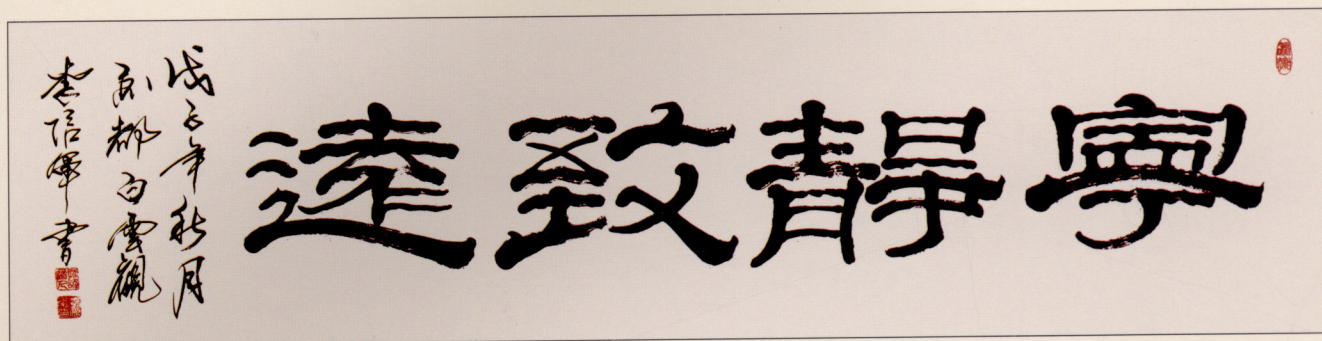 寧靜致遠
戊子年秋月
於都白雲觀
李信軍書